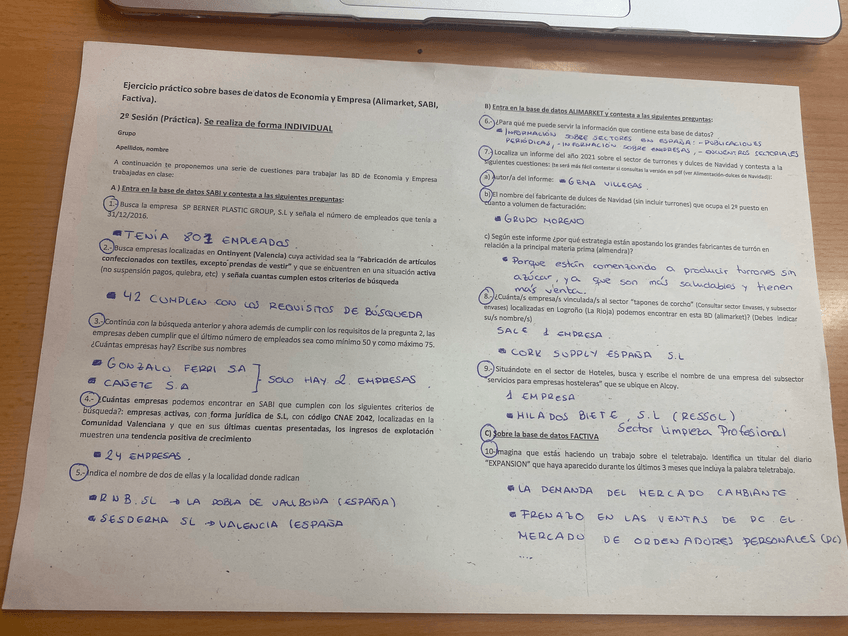 Ejercicio práctico sobre bases de datos de Economia y Empresa (Alimarket, SABI,
Factiva).
2º Sesión (Práctica). Se realiza de forma INDIVIDUAL
Grupo
Apellidos, nombre
A continuación te proponemos una serie de cuestiones para trabajar las BD de Economia y Empresa
trabajadas en clase:
A ) Entra en la base de datos SABI y contesta a las siguientes preguntas:
1.- Busca la empresa SP BERNER PLASTIC GROUP, S.L y señala el número de empleados que tenía a
31/12/2016.
TENIA 801 EMPLEADOS.
2.- Busca empresas localizadas en Ontinyent (Valencia) cuya actividad sea la "Fabricación de artículos
confeccionados con textiles, excepto prendas de vestir" y que se encuentren en una situación activa
(no suspensión pagos, quiebra, etc) y señala cuantas cumplen estos criterios de búsqueda
42 CUMPLEN CON LOS REQUISITOS DE BÚSQUEDA
3.- Continúa con la búsqueda anterior y ahora además de cumplir con los requisitos de la pregunta 2, las
empresas deben cumplir que el último número de empleados sea como mínimo 50 y como máximo 75.
¿Cuántas empresas hay? Escribe sus nombres
GONZALO FERRI SA
CAÑETE S.A
SOLO HAY 2 EMPRESAS
4.- ¿Cuántas empresas podemos encontrar en SABI que cumplen con los siguientes criterios de
búsqueda?: empresas activas, con forma jurídica de S.L, con código CNAE 2042, localizadas en la
Comunidad Valenciana y que en sus últimas cuentas presentadas, los ingresos de explotación
muestren una tendencia positiva de crecimiento
24 EMPRESAS.
5.- Indica el nombre de dos de ellas y la localidad donde radican
RNB.SL → LA POBLA DE VALLBONA (ESPAÑA)
SESDERMA SL → VALENCIA (ESPAÑA
B) Entra en la base de datos ALIMARKET y contesta a las siguientes preguntas:
6.- ¿Para qué me puede servir la información que contiene esta base de datos?
INFORMACIÓN SOBRE SECTORES EN ESPAÑA: - PUBLICACIONES
PERIÓDICAS, - INFORMACIÓN SOBRE EMPRESAS, - ENCUENTROS SECTORIALES
7.- Localiza un informe del año 2021 sobre el sector de turrones y dulces de Navidad y contesta a la
siguientes cuestiones: (te será más fácil contestar si consultas la versión en pdf (ver Alimentación-dulces de Navidad)):
a) Autor/a del informe: GEMA VILLEGAS.
b) El nombre del fabricante de dulces de Navidad (sin incluir turrones) que ocupa el 2º puesto en
cuanto a volumen de facturación:
GRUPO MORENO
c) Según este informe ¿por qué estrategia están apostando los grandes fabricantes de turrón en
relación a la principal materia prima (almendra)?
Porque están comenzando a producir turrones sin
azúcar, ya que son más saludables y tienen
más venta.
8.- ¿Cuánta/s empresa/s vinculada/s al sector "tapones de corcho" (Consultar sector Envases, y subsector
envases) localizadas en Logroño (La Rioja) podemos encontrar en esta BD (alimarket)? (Debes indicar
su/s nombre/s)
SALE 1 EMPRESA.
CORK SUPPLY ESPAÑA S.L
9.- Situándote en el sector de Hoteles, busca y escribe el nombre de una empresa del subsector
"servicios para empresas hosteleras" que se ubique en Alcoy.
1 EMPRESA
HILADOS BIETE, S.L (RESSOL)
Sector Limpieza Profesional
C) Sobre la base de datos FACTIVA
10- Imagina que estás haciendo un trabajo sobre el teletrabajo. Identifica un titular del diario
"EXPANSION" que haya aparecido durante los últimos 3 meses que incluya la palabra teletrabajo.
LA DEMANDA DEL MERCADO CAMBIANTE
FRENAZO EN LAS VENTAS DE PC. EL
MERCADO DE ORDENADORES PERSONALES (PC)
....